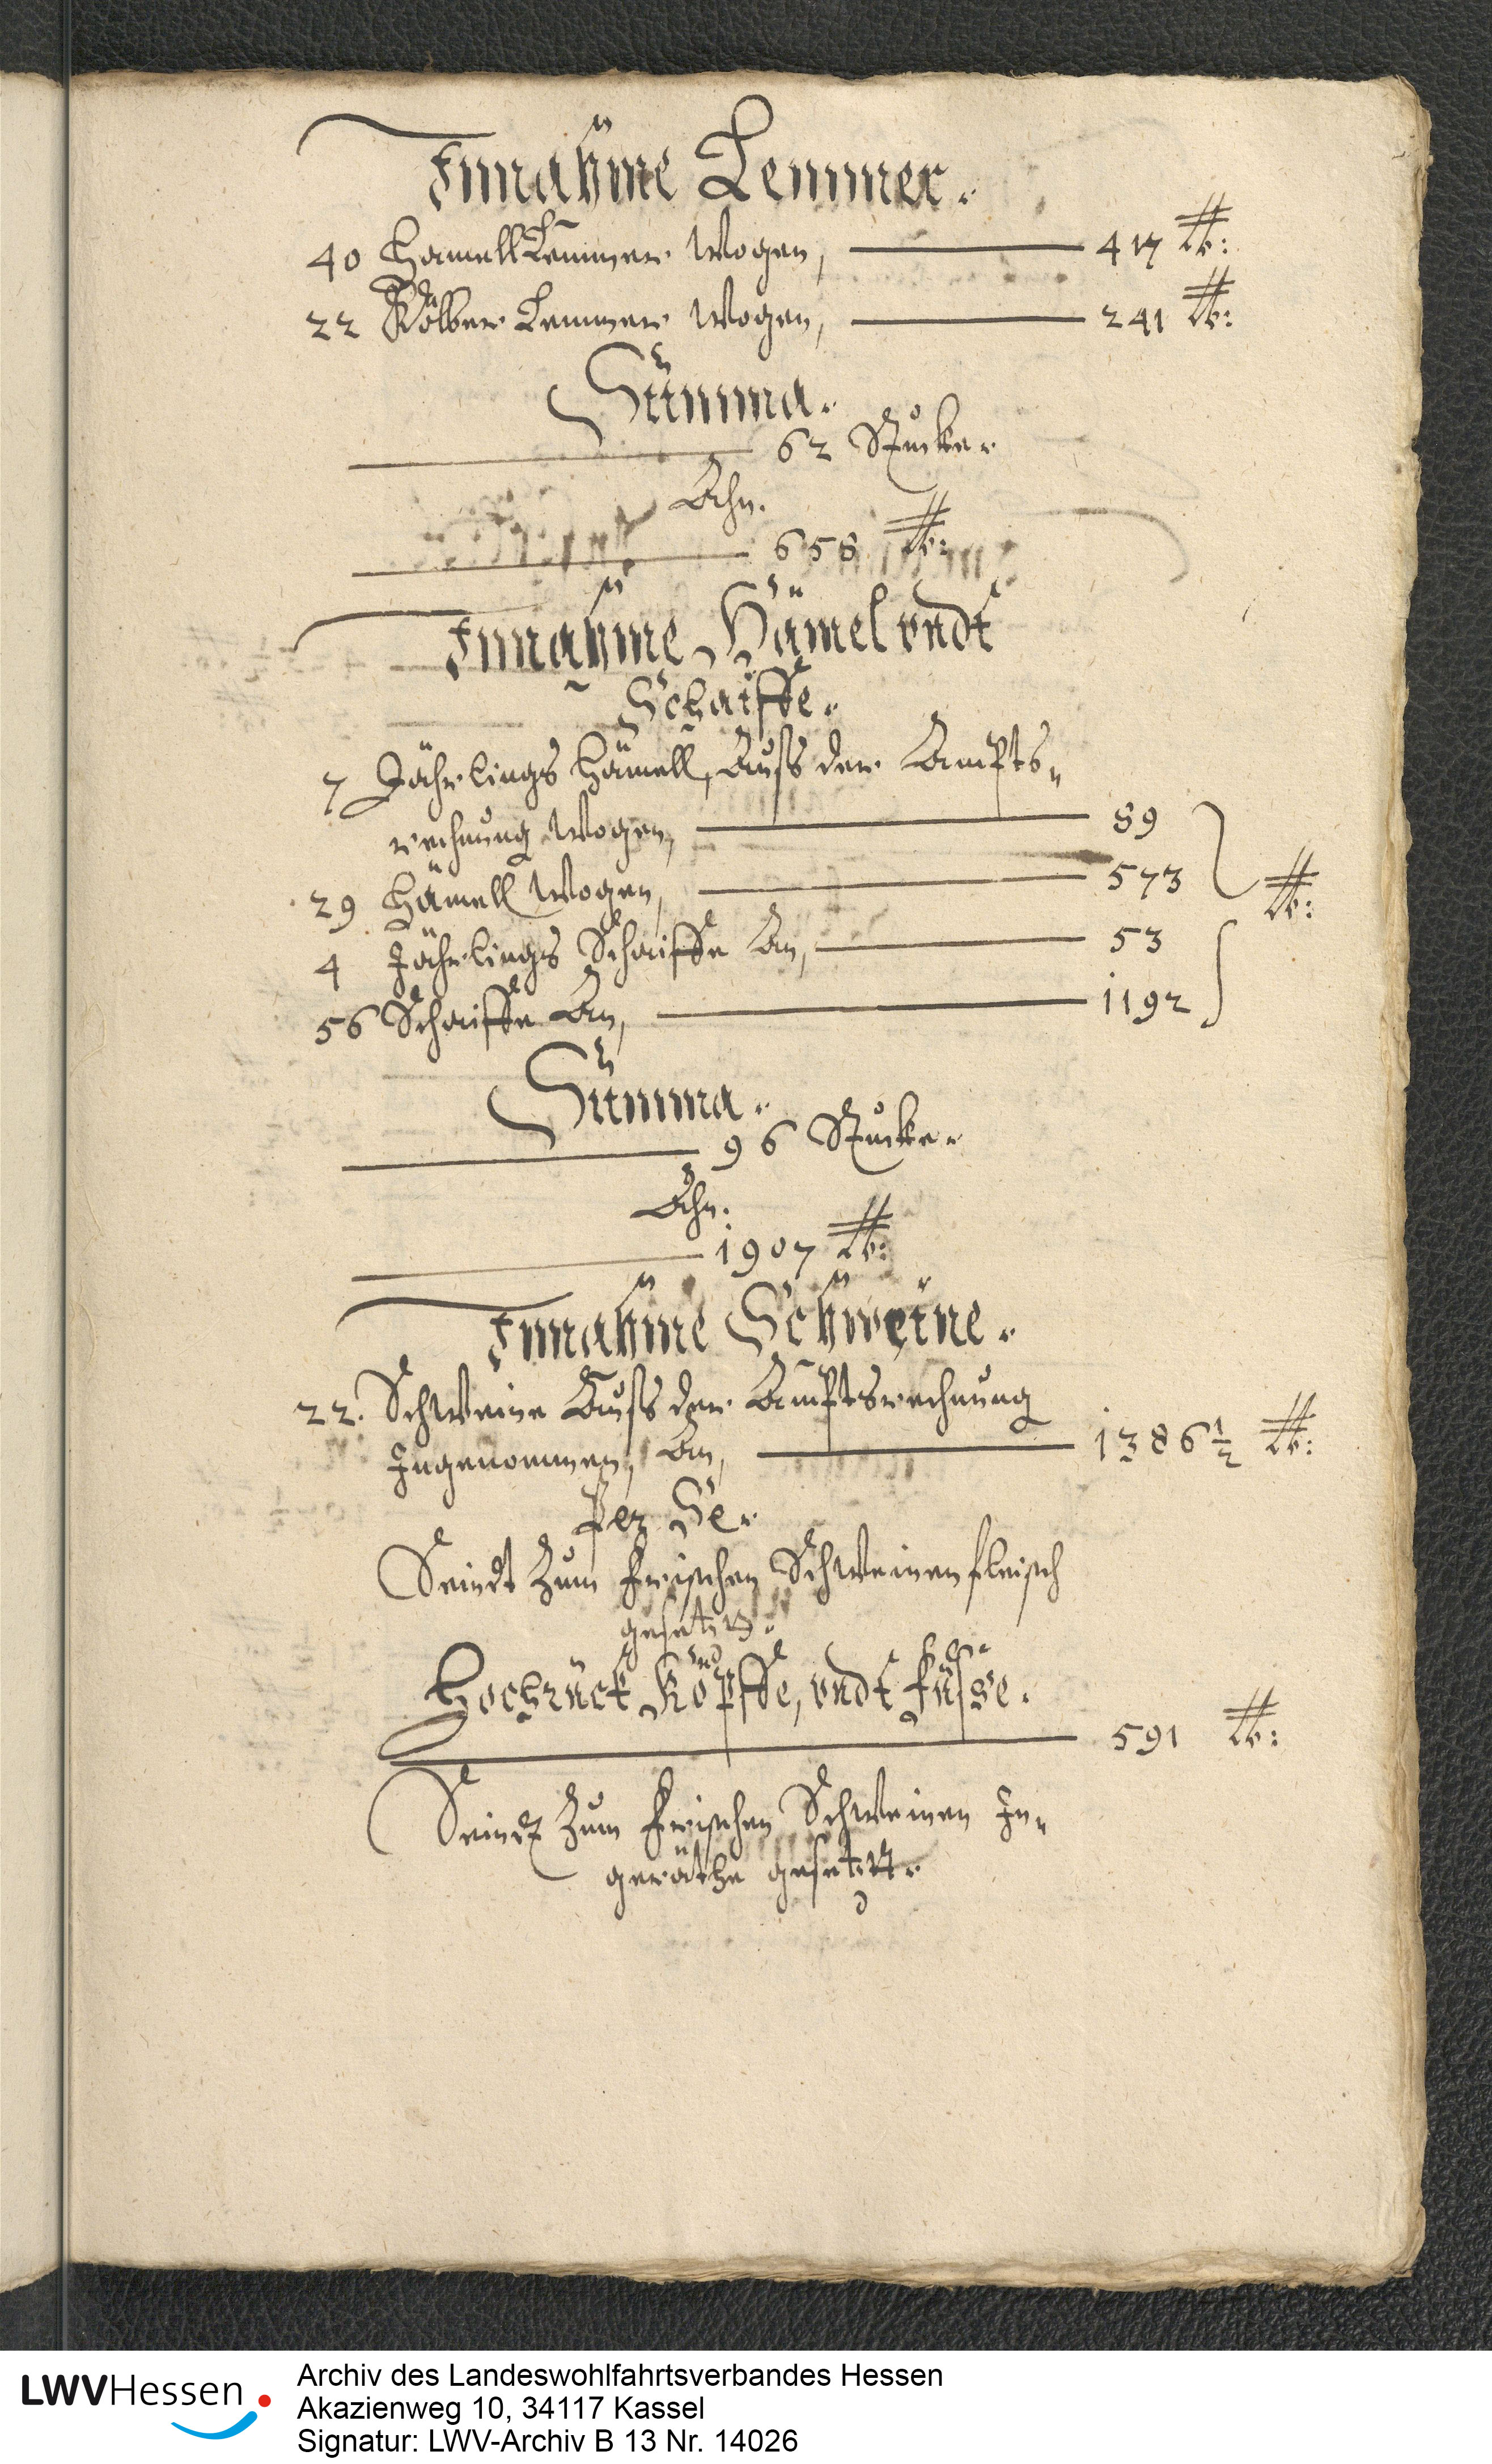 Innahme Lemmer.
40 Hamell Lemmer Wogen, 417 lb:
22 Kölber Lemmer Wogen, 241 lb:
Summa.
62 Stucke.
Ahn.
658 lb:
Innahme Hämel undt
Schaiffe.
7 Jährlings Hämell, Auss der Ampts-
rechnung Wogen, 89
29 Hämell Wogen, 573 lb:
4 Jährlings Schaiffe An, 53
56 Schaiffe An, 1192
Summa.
96 Stucke.
Ahn.
1907 lb:
Innahme Schweine.
22. Schweine Auss der Amptsrechnung
Ingenommen, An, 1386 1/2 lb:
Per Se.
Seindt Zum frischen Schweinenfleisch
gesetzt.
Hochrück Köpffe, undt füsse.
591 lb:
Seindt Zum frischen Schweinen In-
geräthe gesetzt.
LWVHessen
Archiv des Landeswohlfahrtsverbandes Hessen
Akazienweg 10, 34117 Kassel
Signatur: LWV-Archiv B 13 Nr. 14026